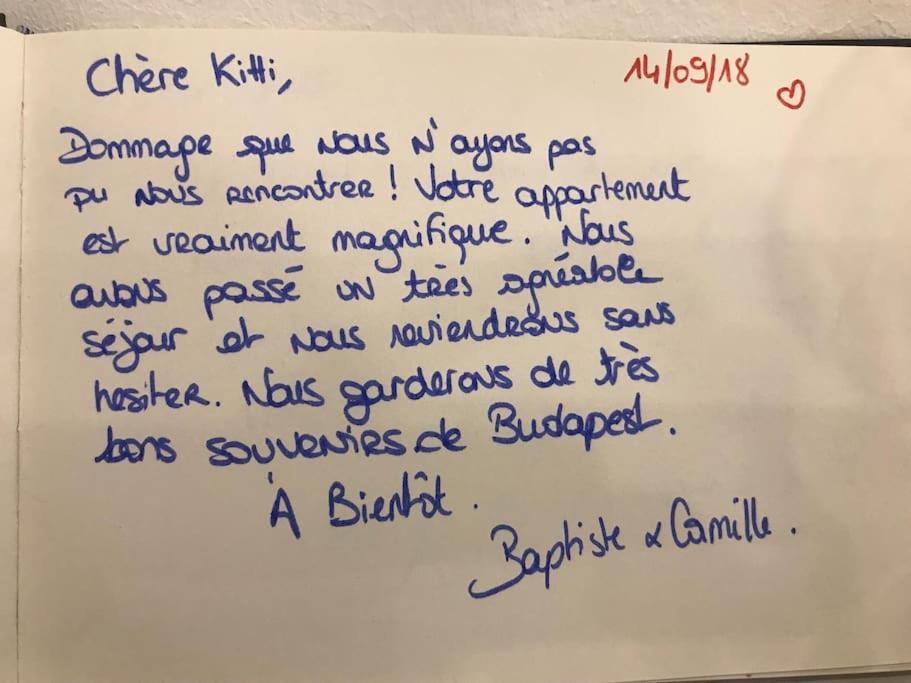 Chère Kitti,
14/09/18
Dommage que nous n'ayons pas
pu nous rencontrer ! Votre appartement
est vraiment magnifique. Nous
avons passé un très agréable
séjour et nous reviendrons sans
hesiter. Nous garderons de très
bons souvenirs de Budapest.
À Bientôt.
Baptiste & Camille.